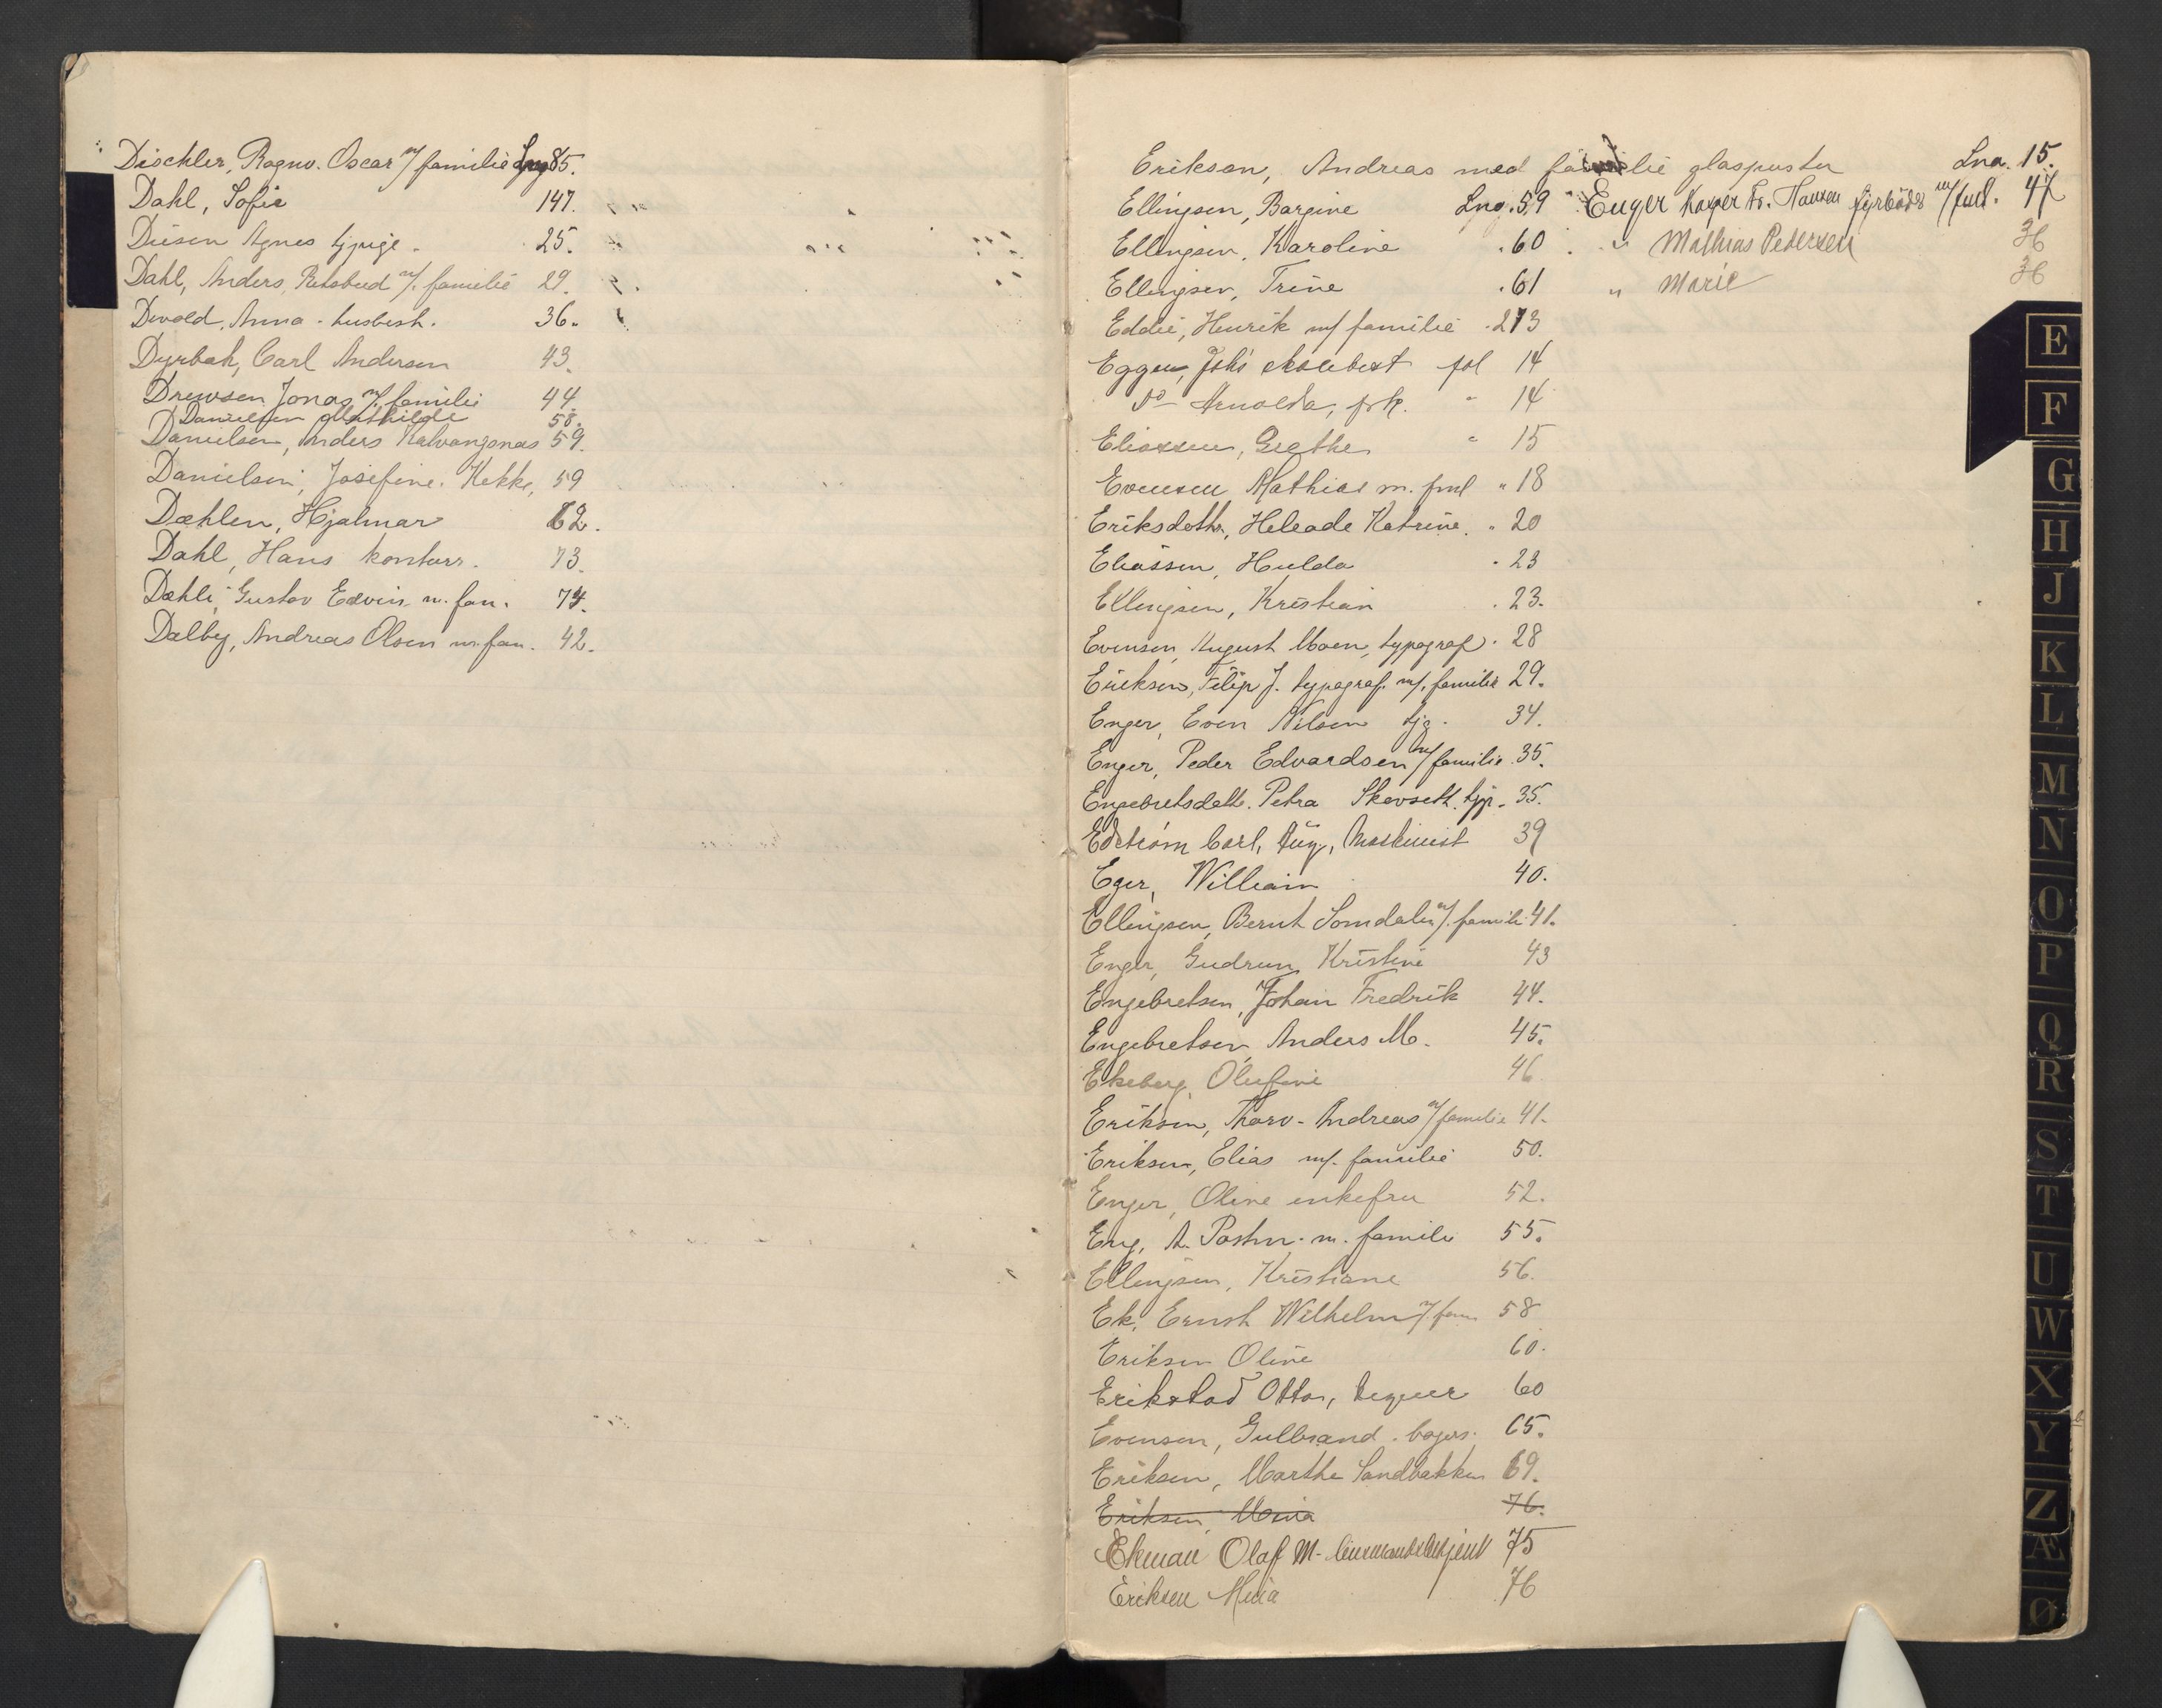 Dischler, Ragnv. Oscar m/ familie Lng 85.
Dahl, Sofie 147.
Diesen Agnes tjpige. 25.
Dahl, Anders, Retsbud m/. familie 29.
Devold, Anna - husbest. 36.
Dyrbak, Carl Andersen 43.
Drewsen Jonas m/. familie 44.
Danielsen Mathilde 58.
Danielsen, Anders 59.
Danielsen, Josefine. Kokke, 59
Dæhlen, Hjalmar 62.
Dahl, Hans kontorr. 73.
Dæhli, Gustav Edvin m. fam. 74.
Dalby, Andreas Olsen m. fam. 42.
Erikson, Andreas med familie glaspuster Lna. 15.
Ellingsen, Bargine Lno. 59
Ellingsen, Karoline . 60
Ellingsen, Trine . 61
Eddie, Henrik m/ familie . 273
Eggen, Johs fol 14
Do Arnolda, frk. " 14
Eliassen, Grethe " 15
Evensen Mathias m. fml " 18
Eriksdottr, Heleade Katrine. " 20
Eliassen, Hulda " 23
Ellingsen, Kristian . 23.
Evensen August Moen, typograf . 28
Eriksen, Filip J. typograf. m/. familie 29.
Enger, Even Nilsen tjg. 34.
Enger, Peder Edvardsen m/ familie. 35.
Engebretsdatt. Petra Skovseth. tjp. 35.
Edström Carl, Aug, Maskinist 39
Eger, William 40.
Ellingsen, Bernt Somdalen m/. familie 41.
Enger, Gudrun Kristine 43
Engebretsen, Johan Fredrik 44.
Engebretsen, Anders M. 45.
Ekeberg, Olufine 46
Eriksen, Thorv. Andreas m/ familie 41.
Eriksen, Elias m/. familie 50.
Enger, Oline enkefru 52.
Eng, A. Postm. m. familie 55.
Ellingsen, Kristiane 56.
Ek, Ernst Wilhelm m/. fam 58
Eriksen Oline 60.
Erikstad Otto, 60
Evensen, Gulbrand. bagers. 65.
Eriksen, Marthe Sandbakken 69.
Eriksen, Mina 76.
Ekman Olaf M- lensmandsbetjent 75
Eriksen Mina 76
Enger Kasper Fr. Hansen fyrbøder m/ fml. 47
" Mathias Pedersen 36
" Marie 36
E
F
G
H
J
K
L
M
N
O
P
Q
R
S
T
U
W
X
Y
Z
Æ
Ø